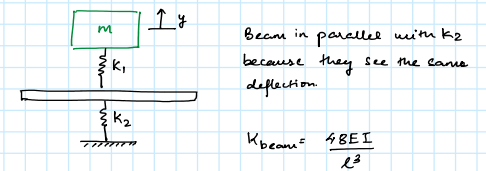 m
y
K₁
K₂
Beam in parallel with K₂
because they see the same
deflection.
K beam = 48EI / l³